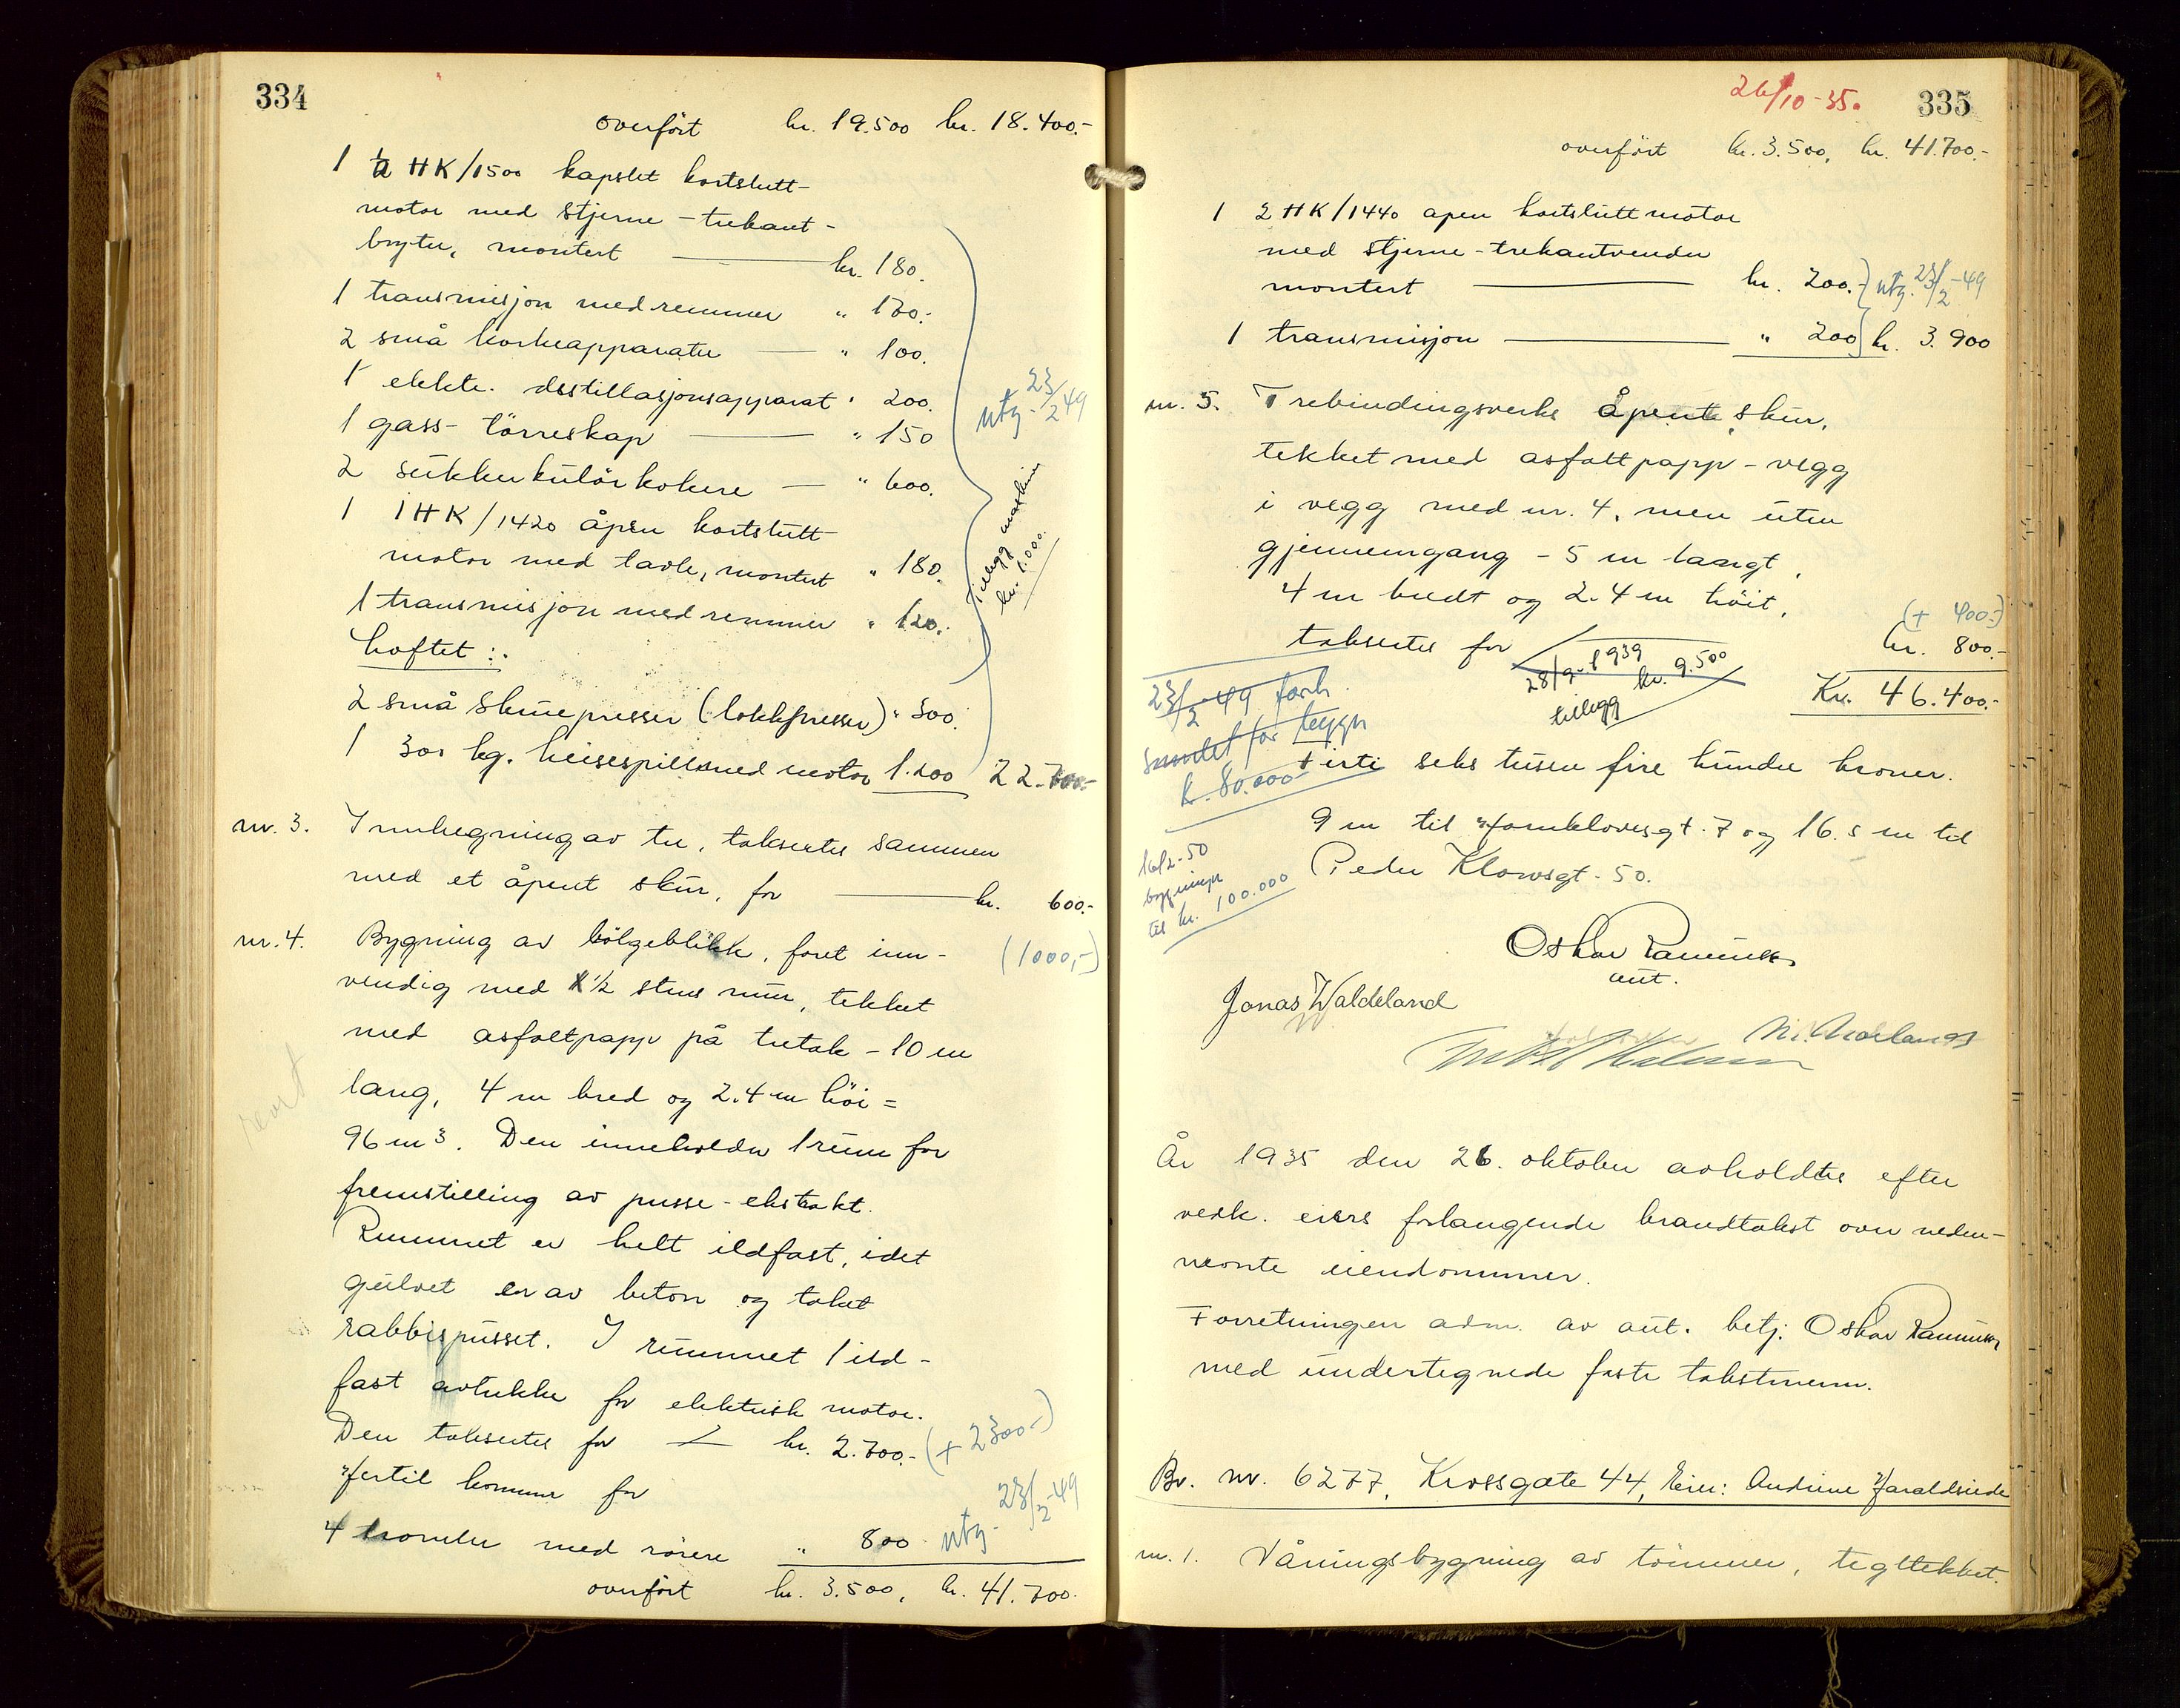 334
overført kr. 19.500 kr. 18.400.-
1 ½ HK/1500 kapslet kortslutt-
motor med stjerne-trekant-
bryter, montert kr. 180.
1 transmisjon med remmer " 170.-
2 små korkeapparater " 100.
1 elektr. destillasjonsapparat " 200.
1 gass-tørreskap " 150
2 sukkerkulörkokere " 600.
1 1 HK/1420 åpen kortslutt
motor med tavle, montert " 180.
1 transmisjon med remmer " 120.-
utg. 23/2 49
Tillegg maskiner
kr. 1.000.
Loftet:
2 små skruepresser (lokkpresser) " 300.
1 300 kg. heisespill med motor 1.200 22.700.-
nr. 3. Innhegning av tre, takseres sammen
med et åpent skur, for kr. 600.-
nr. 4. Bygning av bölgeblikk, foret inn-
(1000,-)
vendig med 1/2 stens mur, tekket
med asfaltpapp på tretak - 10 m
lang, 4 m bred og 2.4 m höi =
96 m3. Den inneholder 1 rum for
fremstilling av pusse-ekstrakt.
Rummet er helt ildfast, idet
gulvet er av beton og taket
rabbispusset. I rummet 1 ild-
fast avlukke for elektrisk motor.
Den takseres for kr. 2.700.- (+ 2300-)
Hertil kommer for
4 tromler med rörere " 800 utg. 23/2-49
overført kr. 3.500, kr. 41.700.
26/10-35.
335
overført kr. 3.500, kr. 41.700.-
1 2 HK/1440 åpen kortsluttmotor
med stjerne-trekantvender
montert kr. 200.- utg. 23/2-49
1 transmisjon " 200 kr. 3.900
nr. 5. Trebindingsverks åpent skur,
tekket med asfaltpapp - vegg
i vegg med nr. 4, men uten
gjennemgang - 5 m langt,
4 m bredt og 2.4 m höit,
(+ 400.-)
takseres for kr. 800.-
28/9-1939
tillegg kr. 9.500
Kr. 46.400.-
23/2-49 forh.
samlet for bygn
kr. 80.000-
Firti seks tusen fire hundre kroner.
9 m til Harnklovesgt. 7 og 16.5 m til
Peder Klowsgt. 50.
16/2-50
bygninger
til kr. 100.000
Oskar Rasmussen
aut.
Jonas Waldeland
År 1935 den 26. oktober avholdtes efter
vedk. eiers forlangende brandtakst over neden-
nevnte eiendommer.
Forretningen adm. av aut. betj. Oskar Rasmussen
med undertegnede faste takstmenn.
Br. nr. 6277, Krossgate 44, Eier: Andrine Haraldseide
nr. 1. Våningsbygning av tömmer, tegltekket.